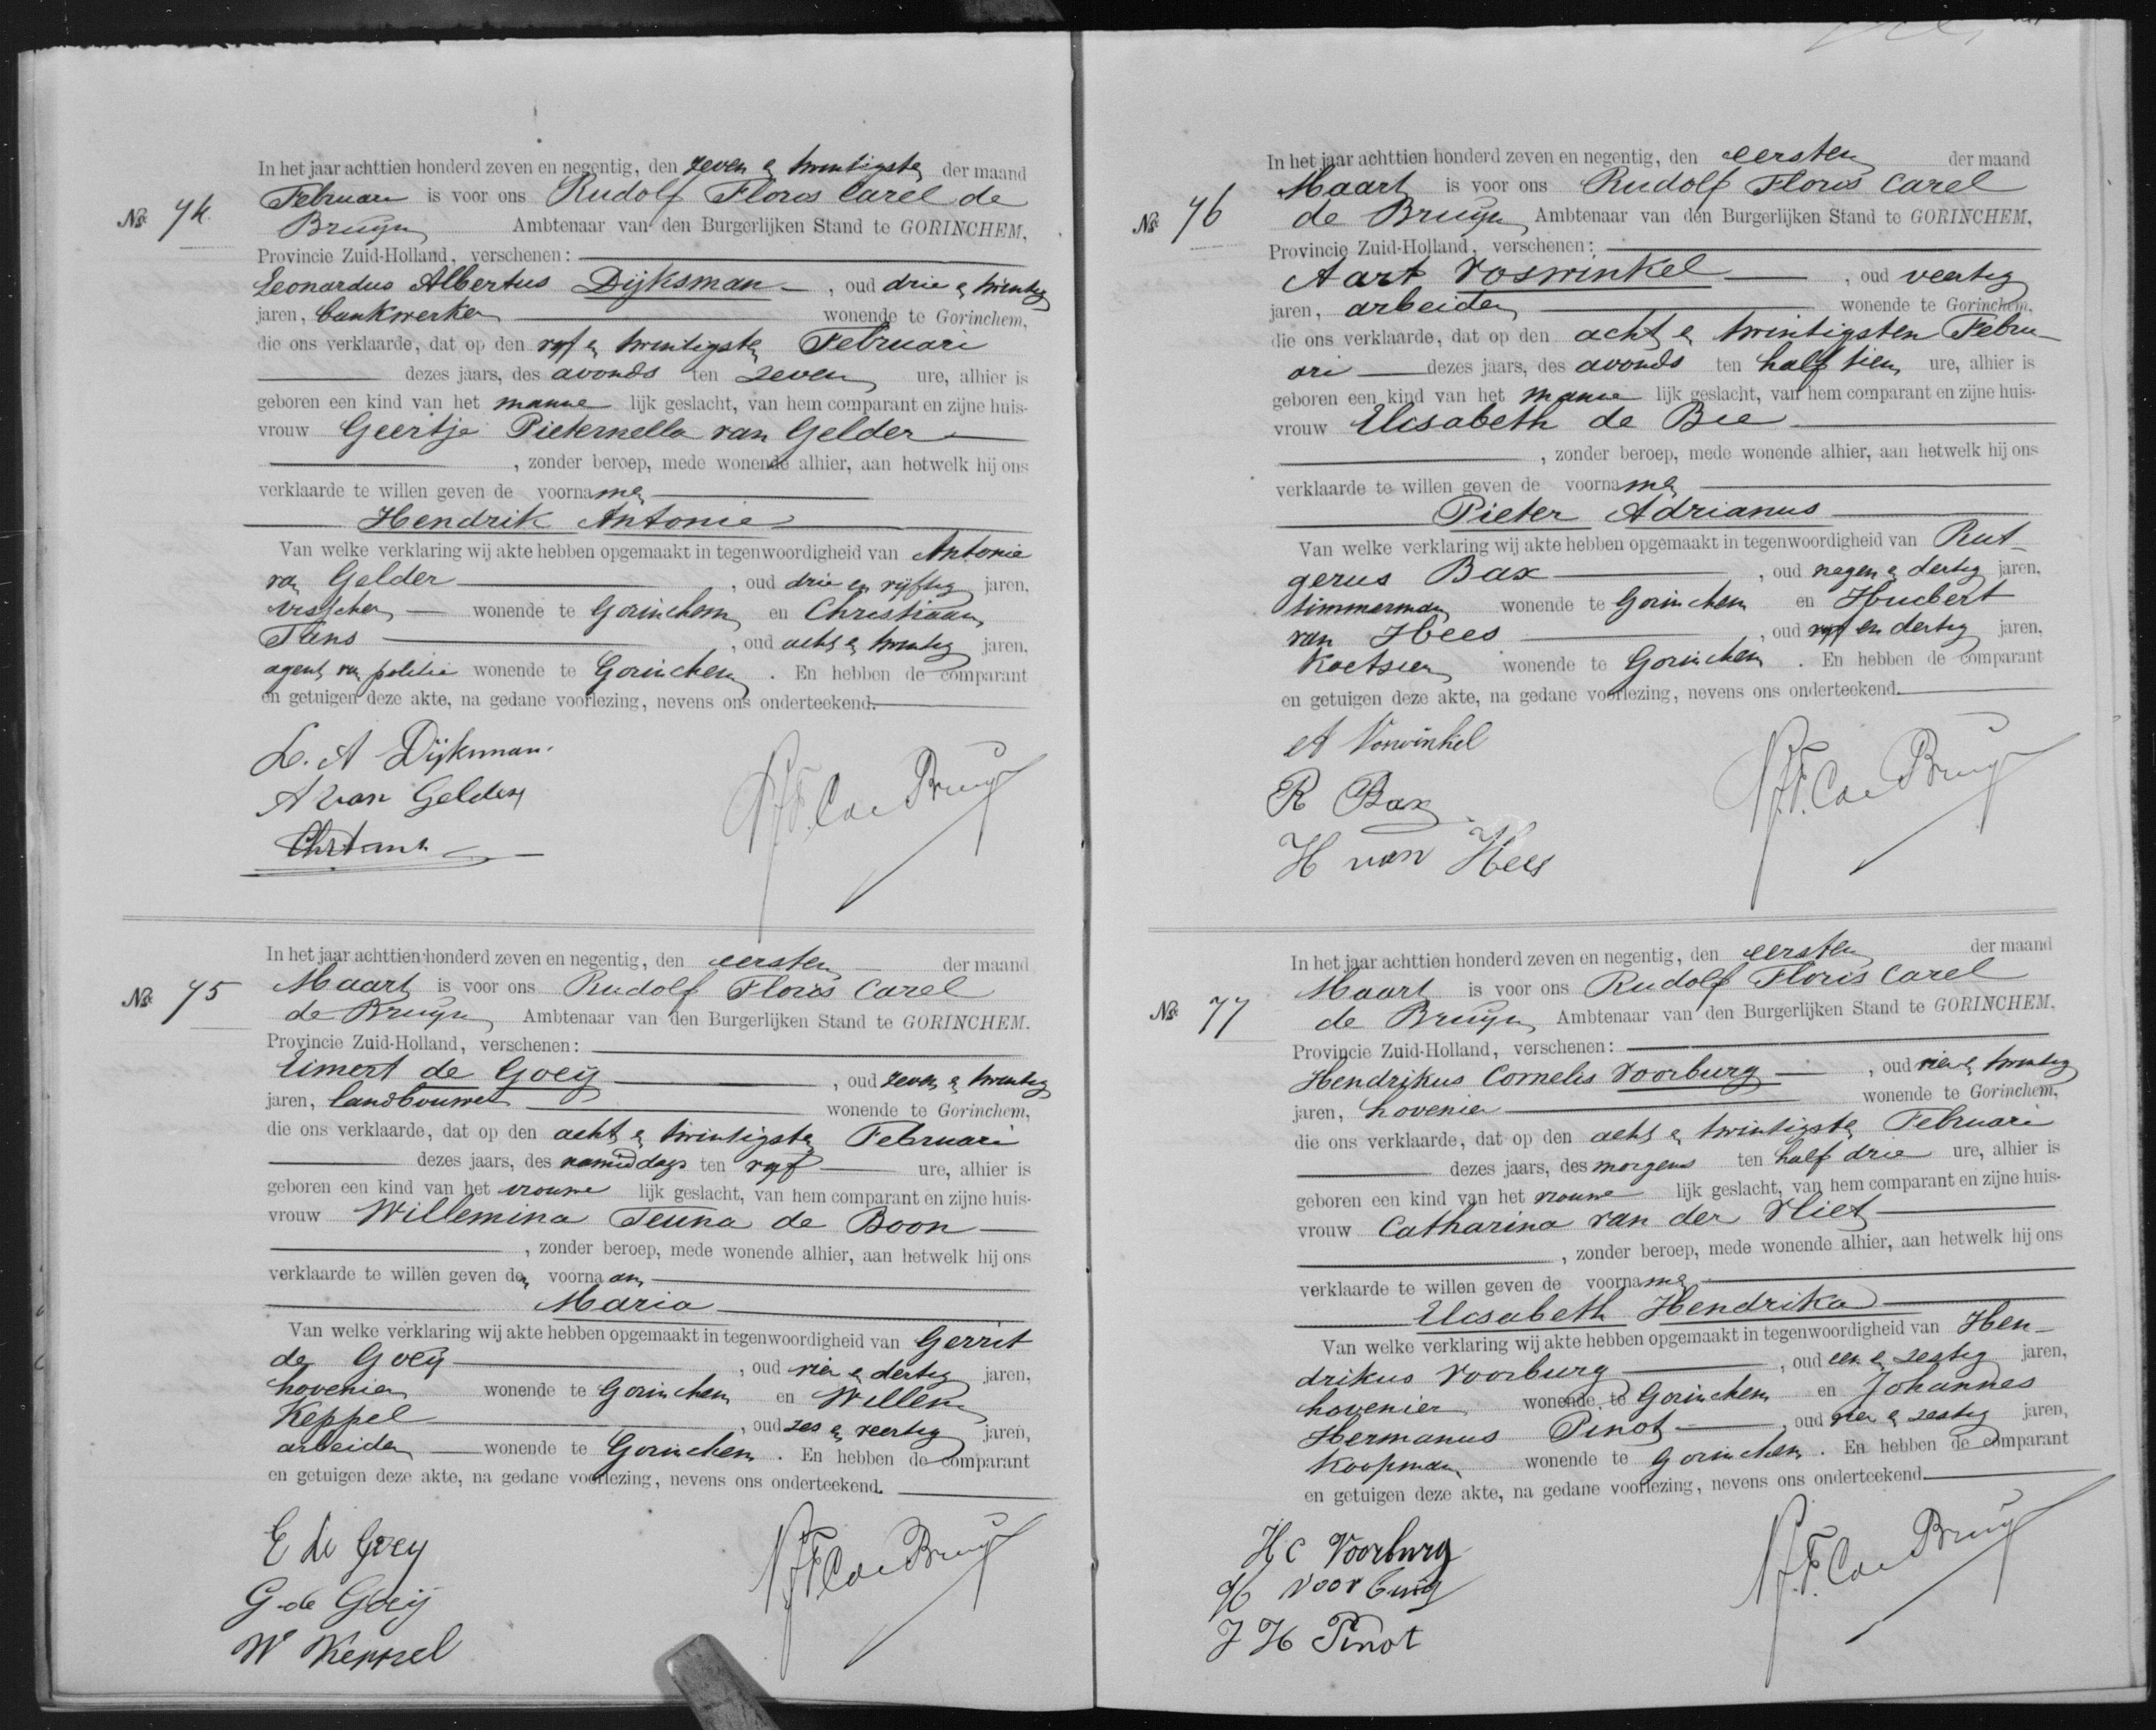 In het jaar achttien honderd zeven en negentig, den zeven en twintigsten der maand
No. 74. Februari is voor ons Rudolf Floris Carel de
Bruijn Ambtenaar van den Burgerlijken Stand te GORINCHEM,
Provincie Zuid-Holland, verschenen:
Leonardus Albertus Dijksman, oud drie en twintig
jaren, bankwerker wonende te Gorinchem,
die ons verklaarde, dat op den vijf en twintigsten Februari
dezes jaars, des avonds ten zeven ure, alhier is
geboren een kind van het manne lijk geslacht, van hem comparant en zijne huis-
vrouw Geertje Pieternella van Gelder
, zonder beroep, mede wonende alhier, aan hetwelk hij ons
verklaarde te willen geven de voornamen
Hendrik Antonie
Van welke verklaring wij akte hebben opgemaakt in tegenwoordigheid van Antonie
van Gelder, oud drie en vijftig jaren,
visscher wonende te Gorinchem en Christiaan
Tans, oud acht en twintig jaren,
agent van politie wonende te Gorinchem. En hebben de comparant
en getuigen deze akte, na gedane voorlezing, nevens ons onderteekend.
L. A Dijksman.
A van Gelder
Chr Tans
R.F.C. de Bruijn
In het jaar achttien honderd zeven en negentig, den eersten der maand
No. 75 Maart is voor ons Rudolf Floris Carel
de Bruijn Ambtenaar van den Burgerlijken Stand te GORINCHEM.
Provincie Zuid-Holland, verschenen:
Eimert de Goeij, oud zeven en twintig
jaren, landbouwer wonende te Gorinchem,
die ons verklaarde, dat op den acht en twintigsten Februari
dezes jaars, des namiddags ten vijf ure, alhier is
geboren een kind van het vrouwe lijk geslacht, van hem comparant en zijne huis-
vrouw Willemina Teuna de Boon
, zonder beroep, mede wonende alhier, aan hetwelk hij ons
verklaarde te willen geven den voornaam
Maria
Van welke verklaring wij akte hebben opgemaakt in tegenwoordigheid van Gerrit
de Goeij, oud vier en dertig jaren,
hovenier wonende te Gorinchem en Willem
Keppel, oud zes en veertig jaren,
arbeider wonende te Gorinchem. En hebben de comparant
en getuigen deze akte, na gedane voorlezing, nevens ons onderteekend.
E de Goey
G. de Goeij
W Keppel
R.F.C. de Bruijn
In het jaar achttien honderd zeven en negentig, den eersten der maand
No. 76 Maart is voor ons Rudolf Floris Carel
de Bruijn Ambtenaar van den Burgerlijken Stand te GORINCHEM,
Provincie Zuid-Holland, verschenen:
Aart Voswinkel, oud veertig
jaren, arbeider wonende te Gorinchem,
die ons verklaarde, dat op den acht en twintigsten Febru-
ari dezes jaars, des avonds ten half tien ure, alhier is
geboren een kind van het manne lijk geslacht, van hem comparant en zijne huis-
vrouw Elisabeth de Bie
, zonder beroep, mede wonende alhier, aan hetwelk hij ons
verklaarde te willen geven de voornamen
Pieter Adrianus
Van welke verklaring wij akte hebben opgemaakt in tegenwoordigheid van Rut-
gerus Bax, oud negen en dertig jaren,
timmerman wonende te Gorinchem en Huibert
van Hees, oud vijf en dertig jaren,
koetsier wonende te Gorinchem. En hebben de comparant
en getuigen deze akte, na gedane voorlezing, nevens ons onderteekend.
A Voswinkel
R Bax
H van Hees
R.F.C. de Bruijn
In het jaar achttien honderd zeven en negentig, den eersten der maand
No. 77 Maart is voor ons Rudolf Floris Carel
de Bruijn Ambtenaar van den Burgerlijken Stand te GORINCHEM,
Provincie Zuid-Holland, verschenen:
Hendrikus Cornelis Voorburg, oud vier en twintig
jaren, hovenier wonende te Gorinchem,
die ons verklaarde, dat op den acht en twintigsten Februari
dezes jaars, des morgens ten half drie ure, alhier is
geboren een kind van het vrouwe lijk geslacht, van hem comparant en zijne huis-
vrouw Catharina van der Vliet
, zonder beroep, mede wonende alhier, aan hetwelk hij ons
verklaarde te willen geven de voornamen
Elisabeth Hendrika
Van welke verklaring wij akte hebben opgemaakt in tegenwoordigheid van Hen-
drikus Voorburg, oud een en zestig jaren,
hovenier wonende te Gorinchem en Johannes
Hermanus Pinot, oud vier en zestig jaren,
koopman wonende te Gorinchem. En hebben de comparant
en getuigen deze akte, na gedane voorlezing, nevens ons onderteekend.
H C Voorburg
H Voorburg
J H Pinot
R.F.C. de Bruijn